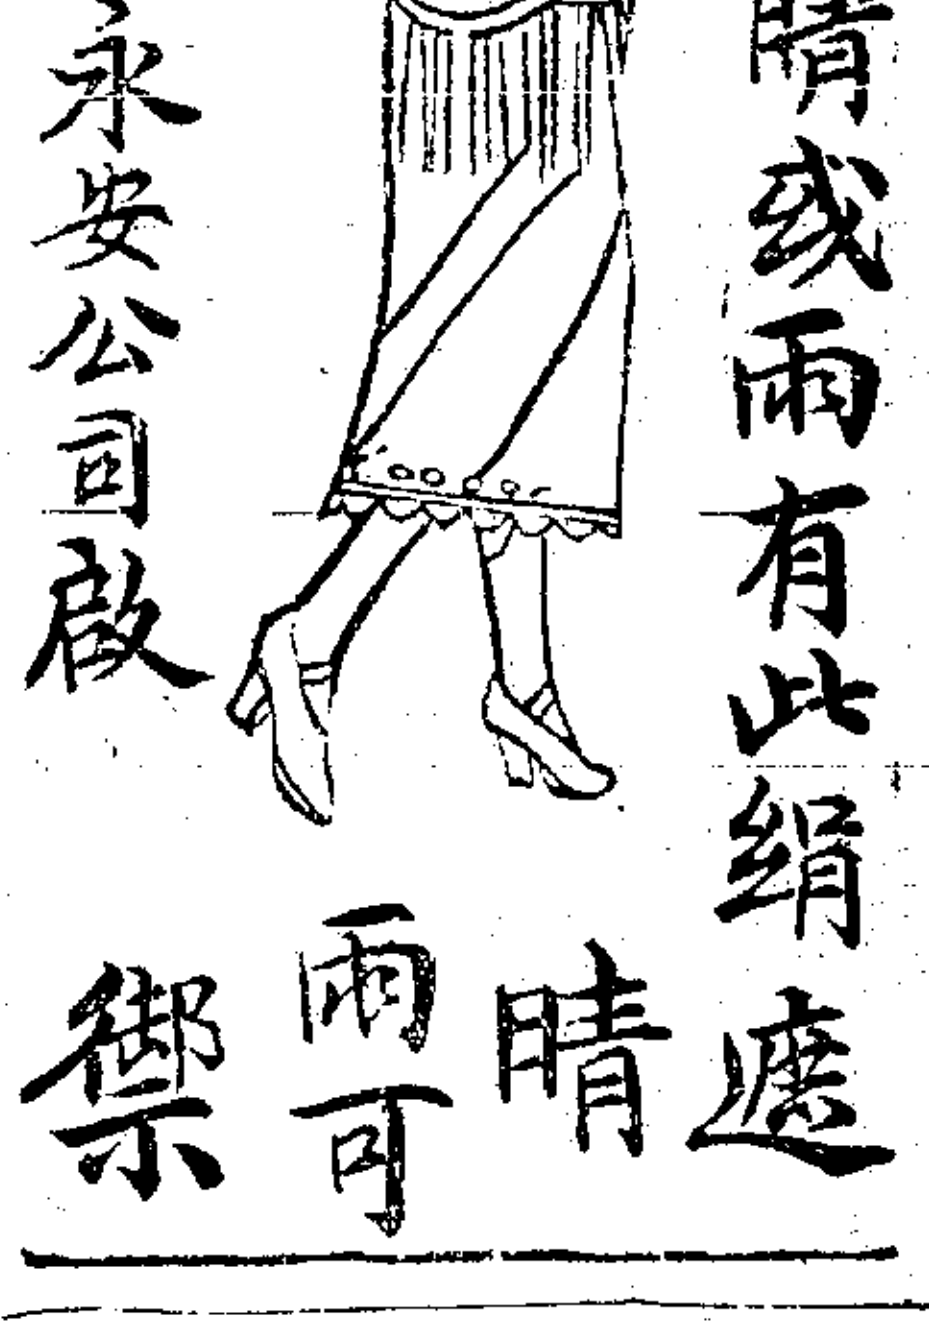 晴或雨有此絹遮
晴雨可禦
永安公司啟